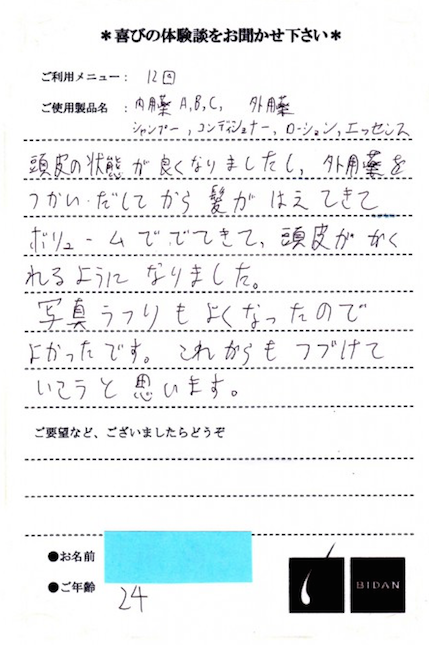 ＊喜びの体験談をお聞かせ下さい＊
ご利用メニュー： 12回
ご使用製品名 ：内用薬 A,B,C, 外用薬
シャンプー, コンディショナー, ローション, エッセンス
頭皮の状態が良くなりましたし、外用薬を
つかいだしてから髪がはえてきて
ボリュームがでてきて、頭皮がかく
れるようになりました。
写真うつりもよくなったので
よかったです。これからもつづけて
いこうと思います。
ご要望など、ございましたらどうぞ
●お名前
●ご年齢 24
BIDAN